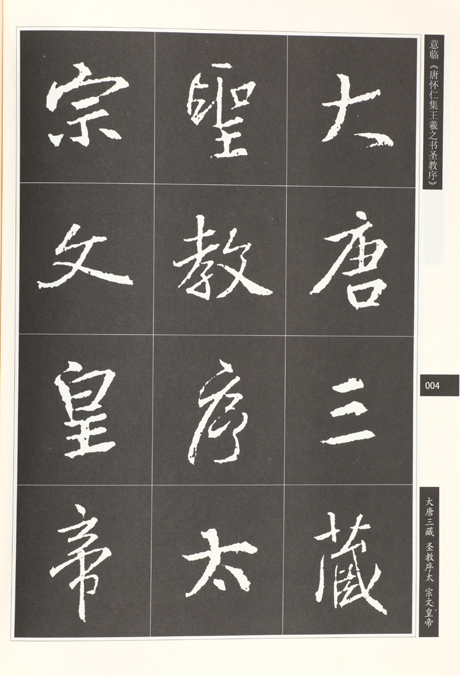 意临《唐怀仁集王羲之书圣教序》
大唐三藏
聖教序太
宗文皇帝
004
大唐三藏 圣教序太 宗文皇帝